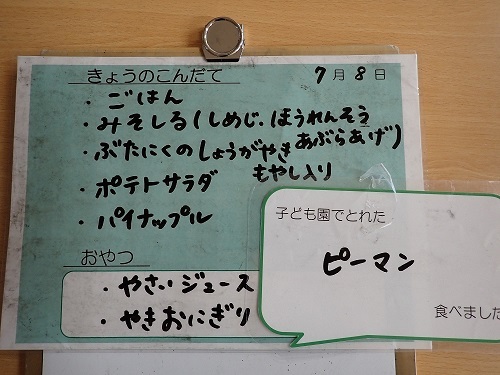 きょうのこんだて 7月8日
・ごはん
・みそしる(しめじ.ほうれんそう
あぶらあげ)
・ぶたにくのしょうがやき
もやし入り
・ポテトサラダ
・パイナップル
おやつ
・やさいジュース
・やきおにぎり
子ども園でとれた
ピーマン
食べました